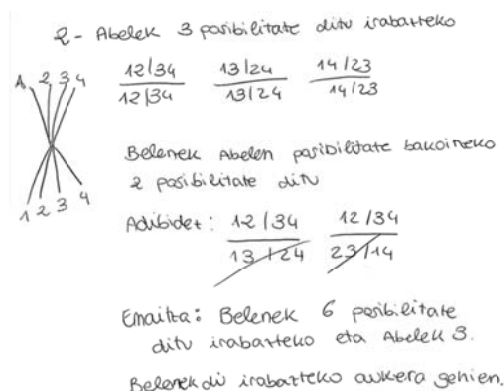 2- Abelek 3 posibilitate ditu irabazteko
12/34 13/24 14/23
12/34 13/24 14/23
1 2 3 4
1 2 3 4
Belenek Abelen posibilitate bakoineko
2 posibilitate ditu
Adibidez: 12/34 12/34
13/24 23/14
Emaitza: Belenek 6 posibilitate
ditu irabazteko eta Abelek 3.
Belenek du irabazteko aukera gehien.